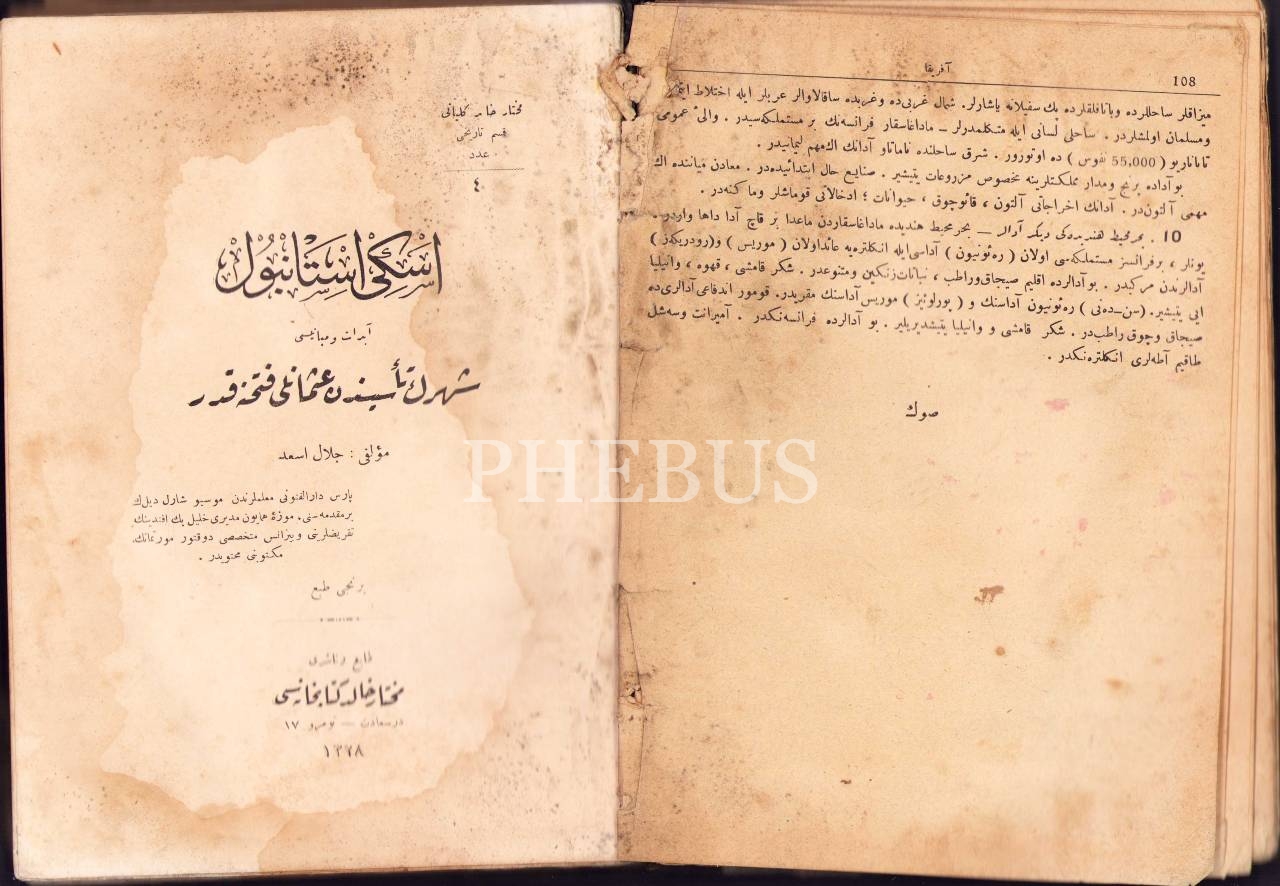 مختار خالد كلياتى
قسم تاريخى
عدد
٤
اسكى استانبول
آبدات و مبانيسى
شهرك تأسيسندن عثمانلى فتحنه قدر
مؤلفى : جلال اسعد
پارس دارالفنونى معلملرندن موسيو شارل ديل ك
بر مقدمه سنى، موزۀ همايون مديرى خليل بك افندينك
تقريضلرينى و بيزانس متخصصى دوقتور مورتمانك
مكتوبنى محتويدر .
برنجى طبع
طابع و ناشرى
مختار خالد كتابخانه سى
درسعادت — نومرو ١٧
١٣٢٨
108
آفريقا
ميزاقلر ساحللرده وباتاقلقلرده پك سفيلانه ياشارلر. شمال غربى ده وغربده ساقالاوالر عربلر ايله اختلاط
ومسلمان اولمشلردر . ساحلى لسانى ايله متكلمدرلر — ماداغاسقار فرانسه نك بر مستملكه سيدر . والئ عمومى
تاناناريو ( 55,000 نفوس ) ده اوتورور . شرق ساحلنده تاماتاو آدانك اك مهم ليمانيدر .
بو آداده برنج ومدار مملكتلرينه مخصوص مزروعات يتيشير . صنايع حال ابتدائيده در . معادن ميساننده اك
مهمى آلتوندر . آدانك اخراجاتى آلتون ، قائوچوق ، حيوانات ؛ ادخالاتى قوماشلر وما كنه در .
10 . بحر محيط هنديده كى ديكر آدالر — بحر محيط هنديده ماداغاسقاردن ماعدا بر قاچ آدا داها واردر .
بونلر ، بر فرانسز مستملكه سى اولان ( ره ئونيون ) آداسى ايله انكلتره يه عائد اولان ( موريس ) و( رودريكه ز )
آدالرندن مركبدر . بو آدالرده اقليم صيجاق وراطب ، نباتات زنكين ومتنوعدر . شكر قامشى ، قهوه ، وانيليا
ايى يتيشير. ( سن ـ دەنى ) ره ئونيون آداسنك و ( پورلوئيز ) موريس آداسنك مقريدر. قومور اندفاعى آدالرى ده
صيجاق وچوق راطبدر . شكر قامشى و وانيليا يتيشديريلير . بو آدالرده فرانسه نكدر . آميرانت وسه شل
طاقيم آطه لرى انكلتره نكدر .
صوك
PHEBUS